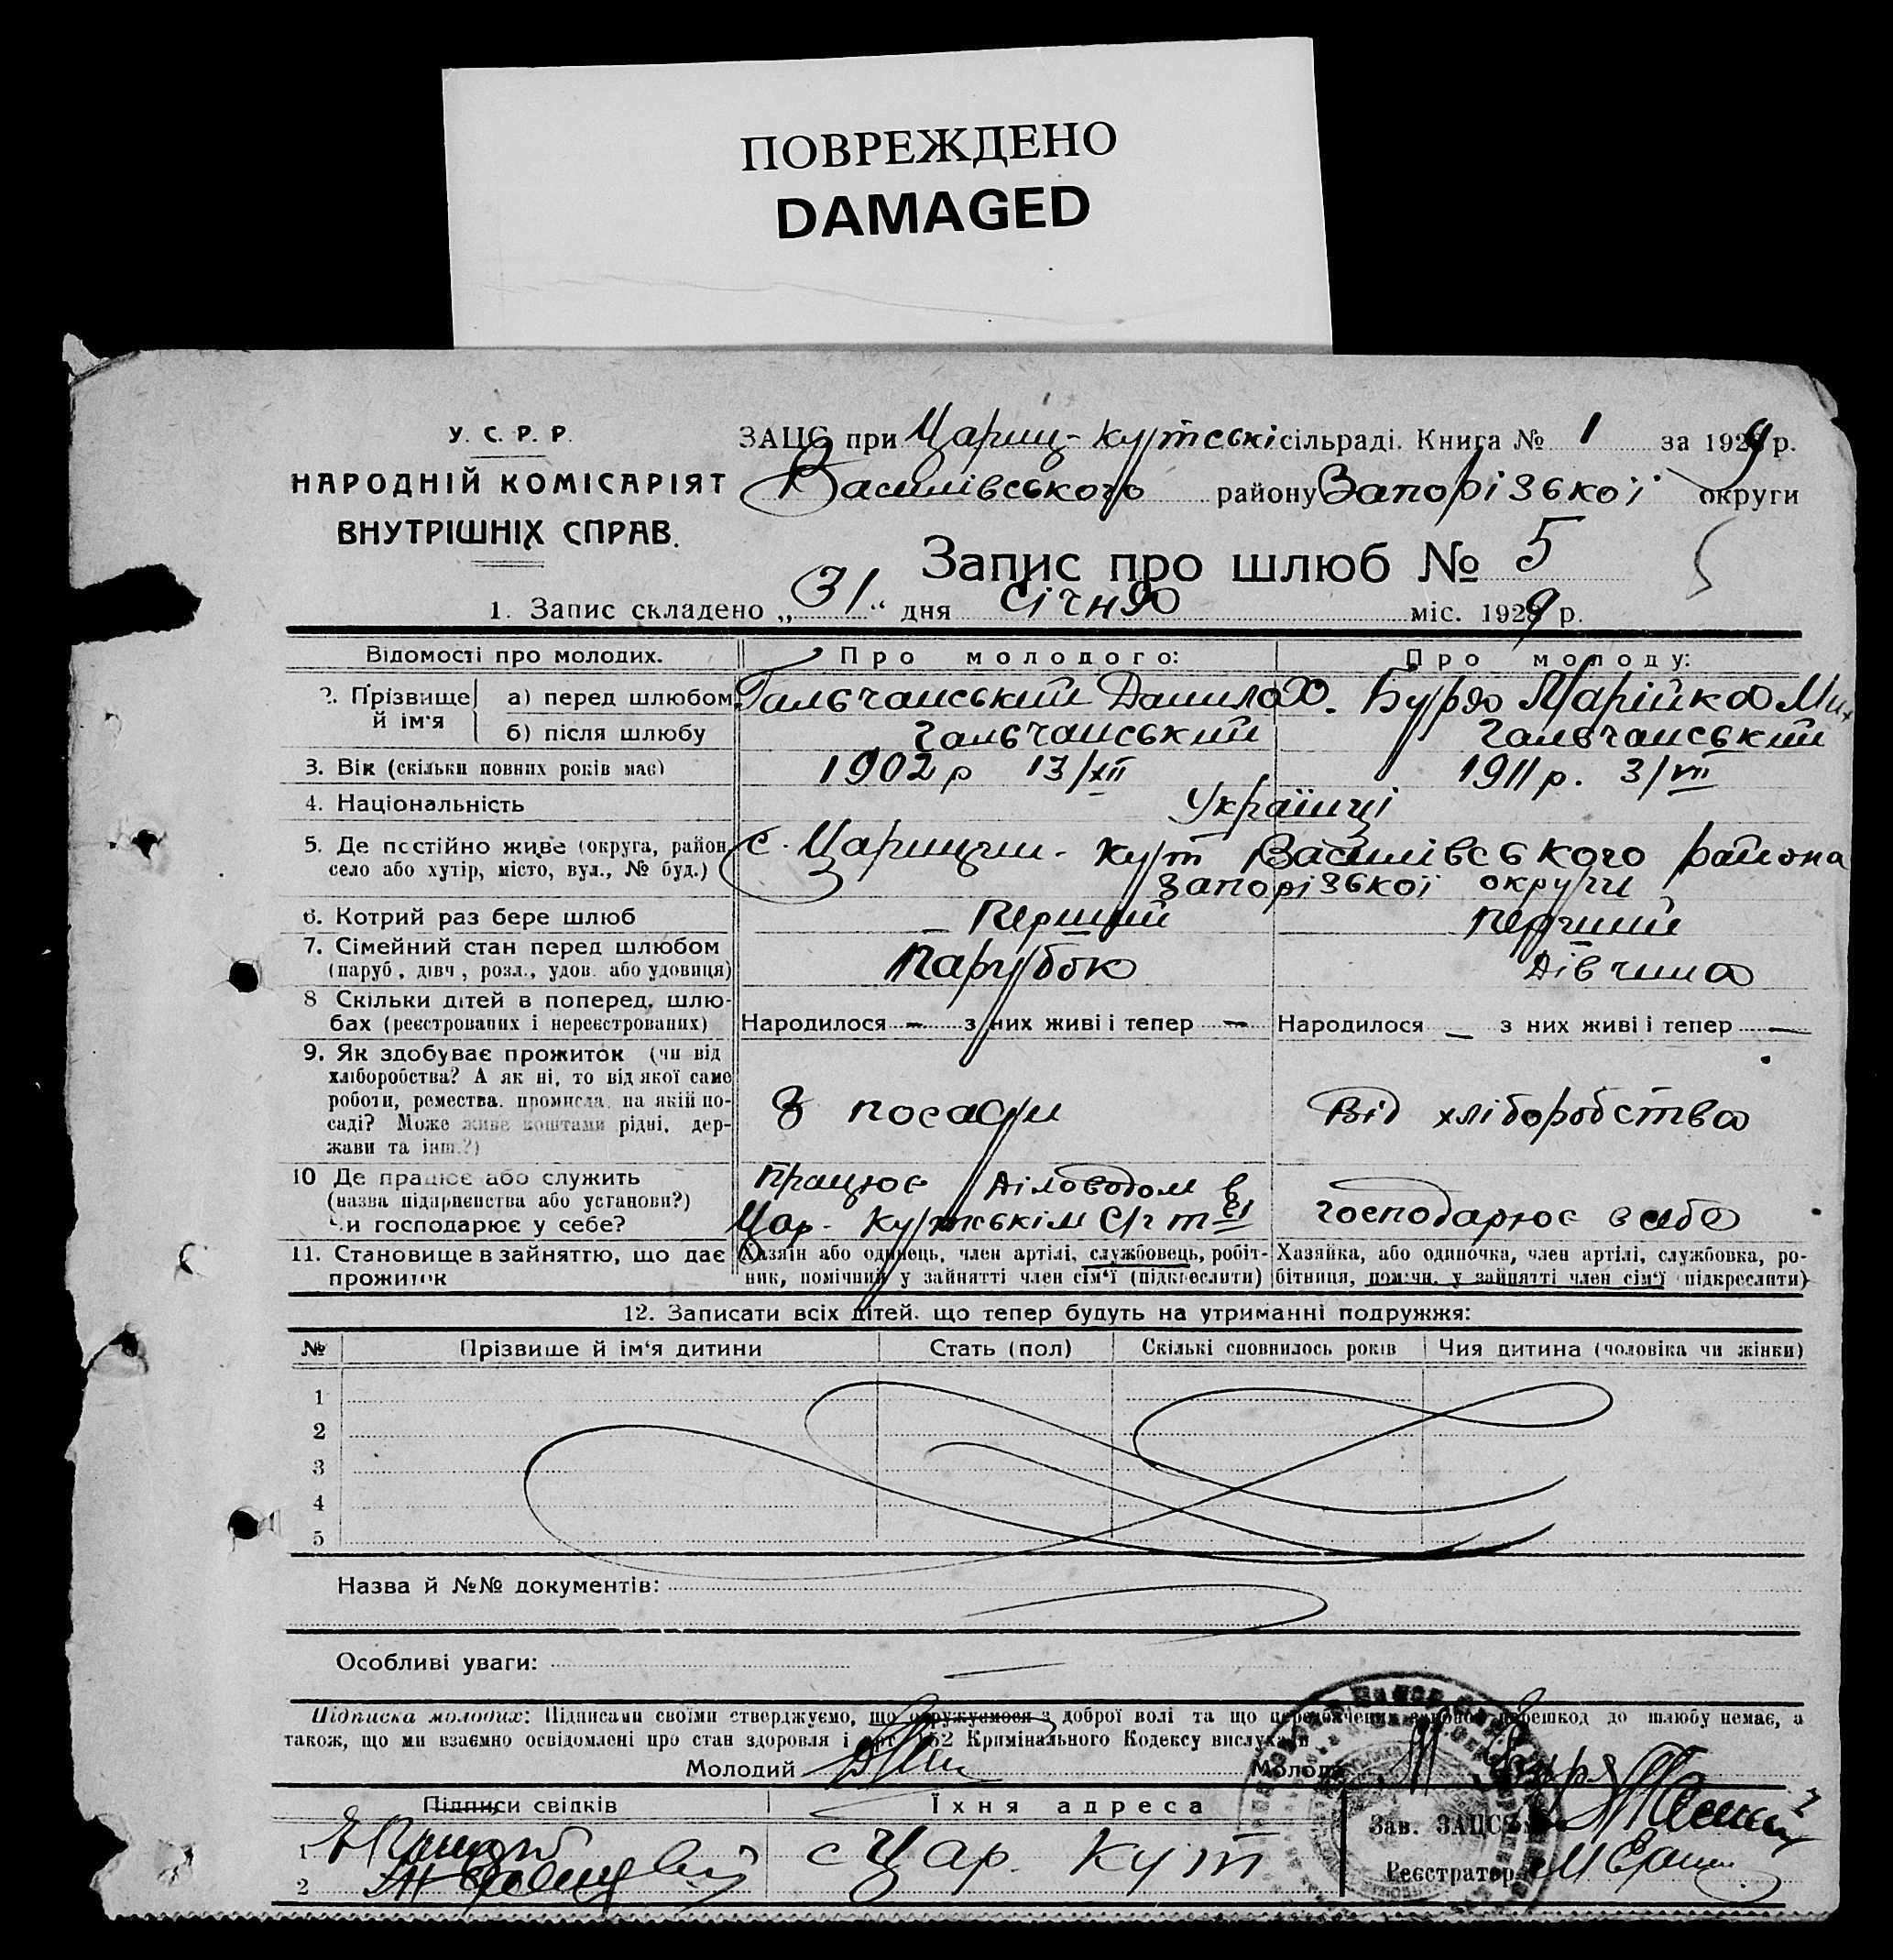 ПОВРЕЖДЕНО
DAMAGED
У. С. Р. Р.
НАРОДНІЙ КОМІСАРІЯТ
ВНУТРІШНІХ СПРАВ.
ЗАЦС при Цариц-Кутські сільраді. Книга № 1 за 1929 р.
Василівського району Запорізької округи
Запис про шлюб № 5
1. Запис складено „31“ дня Січня міс. 1929 р.
Відомості про молодих. Про молодого: Про молоду:
2. Прізвище й ім'я а) перед шлюбом Гальчанський Данило Х. Бурда Марійка Мих
б) після шлюбу Гальчанський Гальчанський
3. Вік (скільки повних років має) 1902 р 13/XII 1911 р. 3/VII
4. Національність Українці
5. Де постійно живе (округа, район, с. Царицин-Кут Василівського района
село або хутір, місто, вул., № буд.) Запорізької округи
6. Котрий раз бере шлюб Перший перший
7. Сімейний стан перед шлюбом
(паруб., дівч., розл., удов. або удовиця) Парубок Дівчина
8 Скільки дітей в поперед. шлю-
бах (реєстрованих і нереєстрованих) Народилося — з них живі і тепер — Народилося — з них живі і тепер —
9. Як здобуває прожиток (чи від
хліборобства? А як ні, то від якої саме
роботи, ремества, промисла, на якій по- З посади Від хліборобства
саді? Може живе коштами рідні, дер-
жави та інш.?)
10 Де працює або служить працює Діловодом в
(назва підприємства або установи?)
Чи господарює у себе? Цар-Кутськім С/г т-ві господарює в себе
11. Становище в зайняттю, що дає Хазяїн або одинець, член артілі, службовець, робіт- Хазяйка, або одиночка, член артілі, службовка, ро-
прожиток ник, помічний у зайнятті член сім'ї (підкреслити) бітниця, помічн. у зайнятті член сім'ї (підкреслити)
12. Записати всіх дітей, що тепер будуть на утриманні подружжя:
№ Прізвище й ім'я дитини Стать (пол) Скількі сповнилось років Чия дитина (чоловіка чи жінки)
1
2
3
4
5
Назва й №№ документів:
Особливі уваги: —
Підписка молодих: Підписами своїми стверджуємо, що одружуємося з доброї волі та що передбачених законом перешкод до шлюбу немає, а
також, що ми взаємно освідомлені про стан здоровля і арт. 152 Кримінального Кодексу вислухали
Молодий Молода М Бурда
Підписи свідків Їхня адреса
Зав. ЗАЦС'ом
1 с Цар. Кут
Реєстратор
2